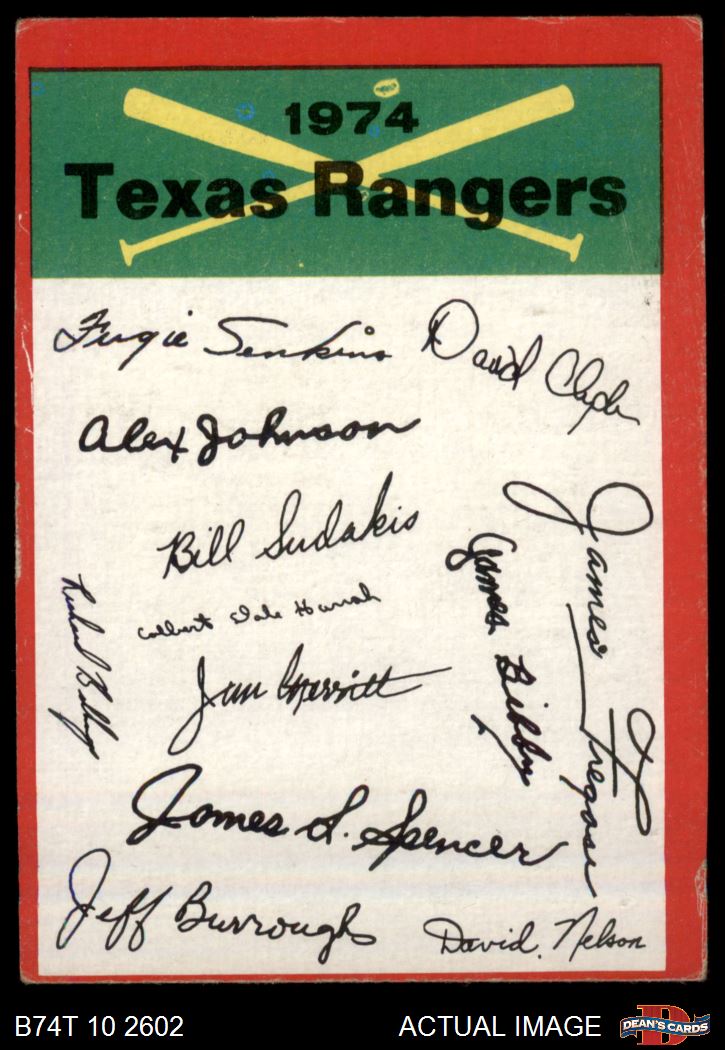 1974
Texas Rangers
Fergie Jenkins
David Clyde
Alex Johnson
Bill Sudakis
James Fregosi
James Bibby
Colbert Dale Hamrah
Richard Billings
Jim Merritt
James L. Spencer
Jeff Burroughs
David. Nelson
B74T 10 2602
ACTUAL IMAGE
D
DEAN'S CARDS